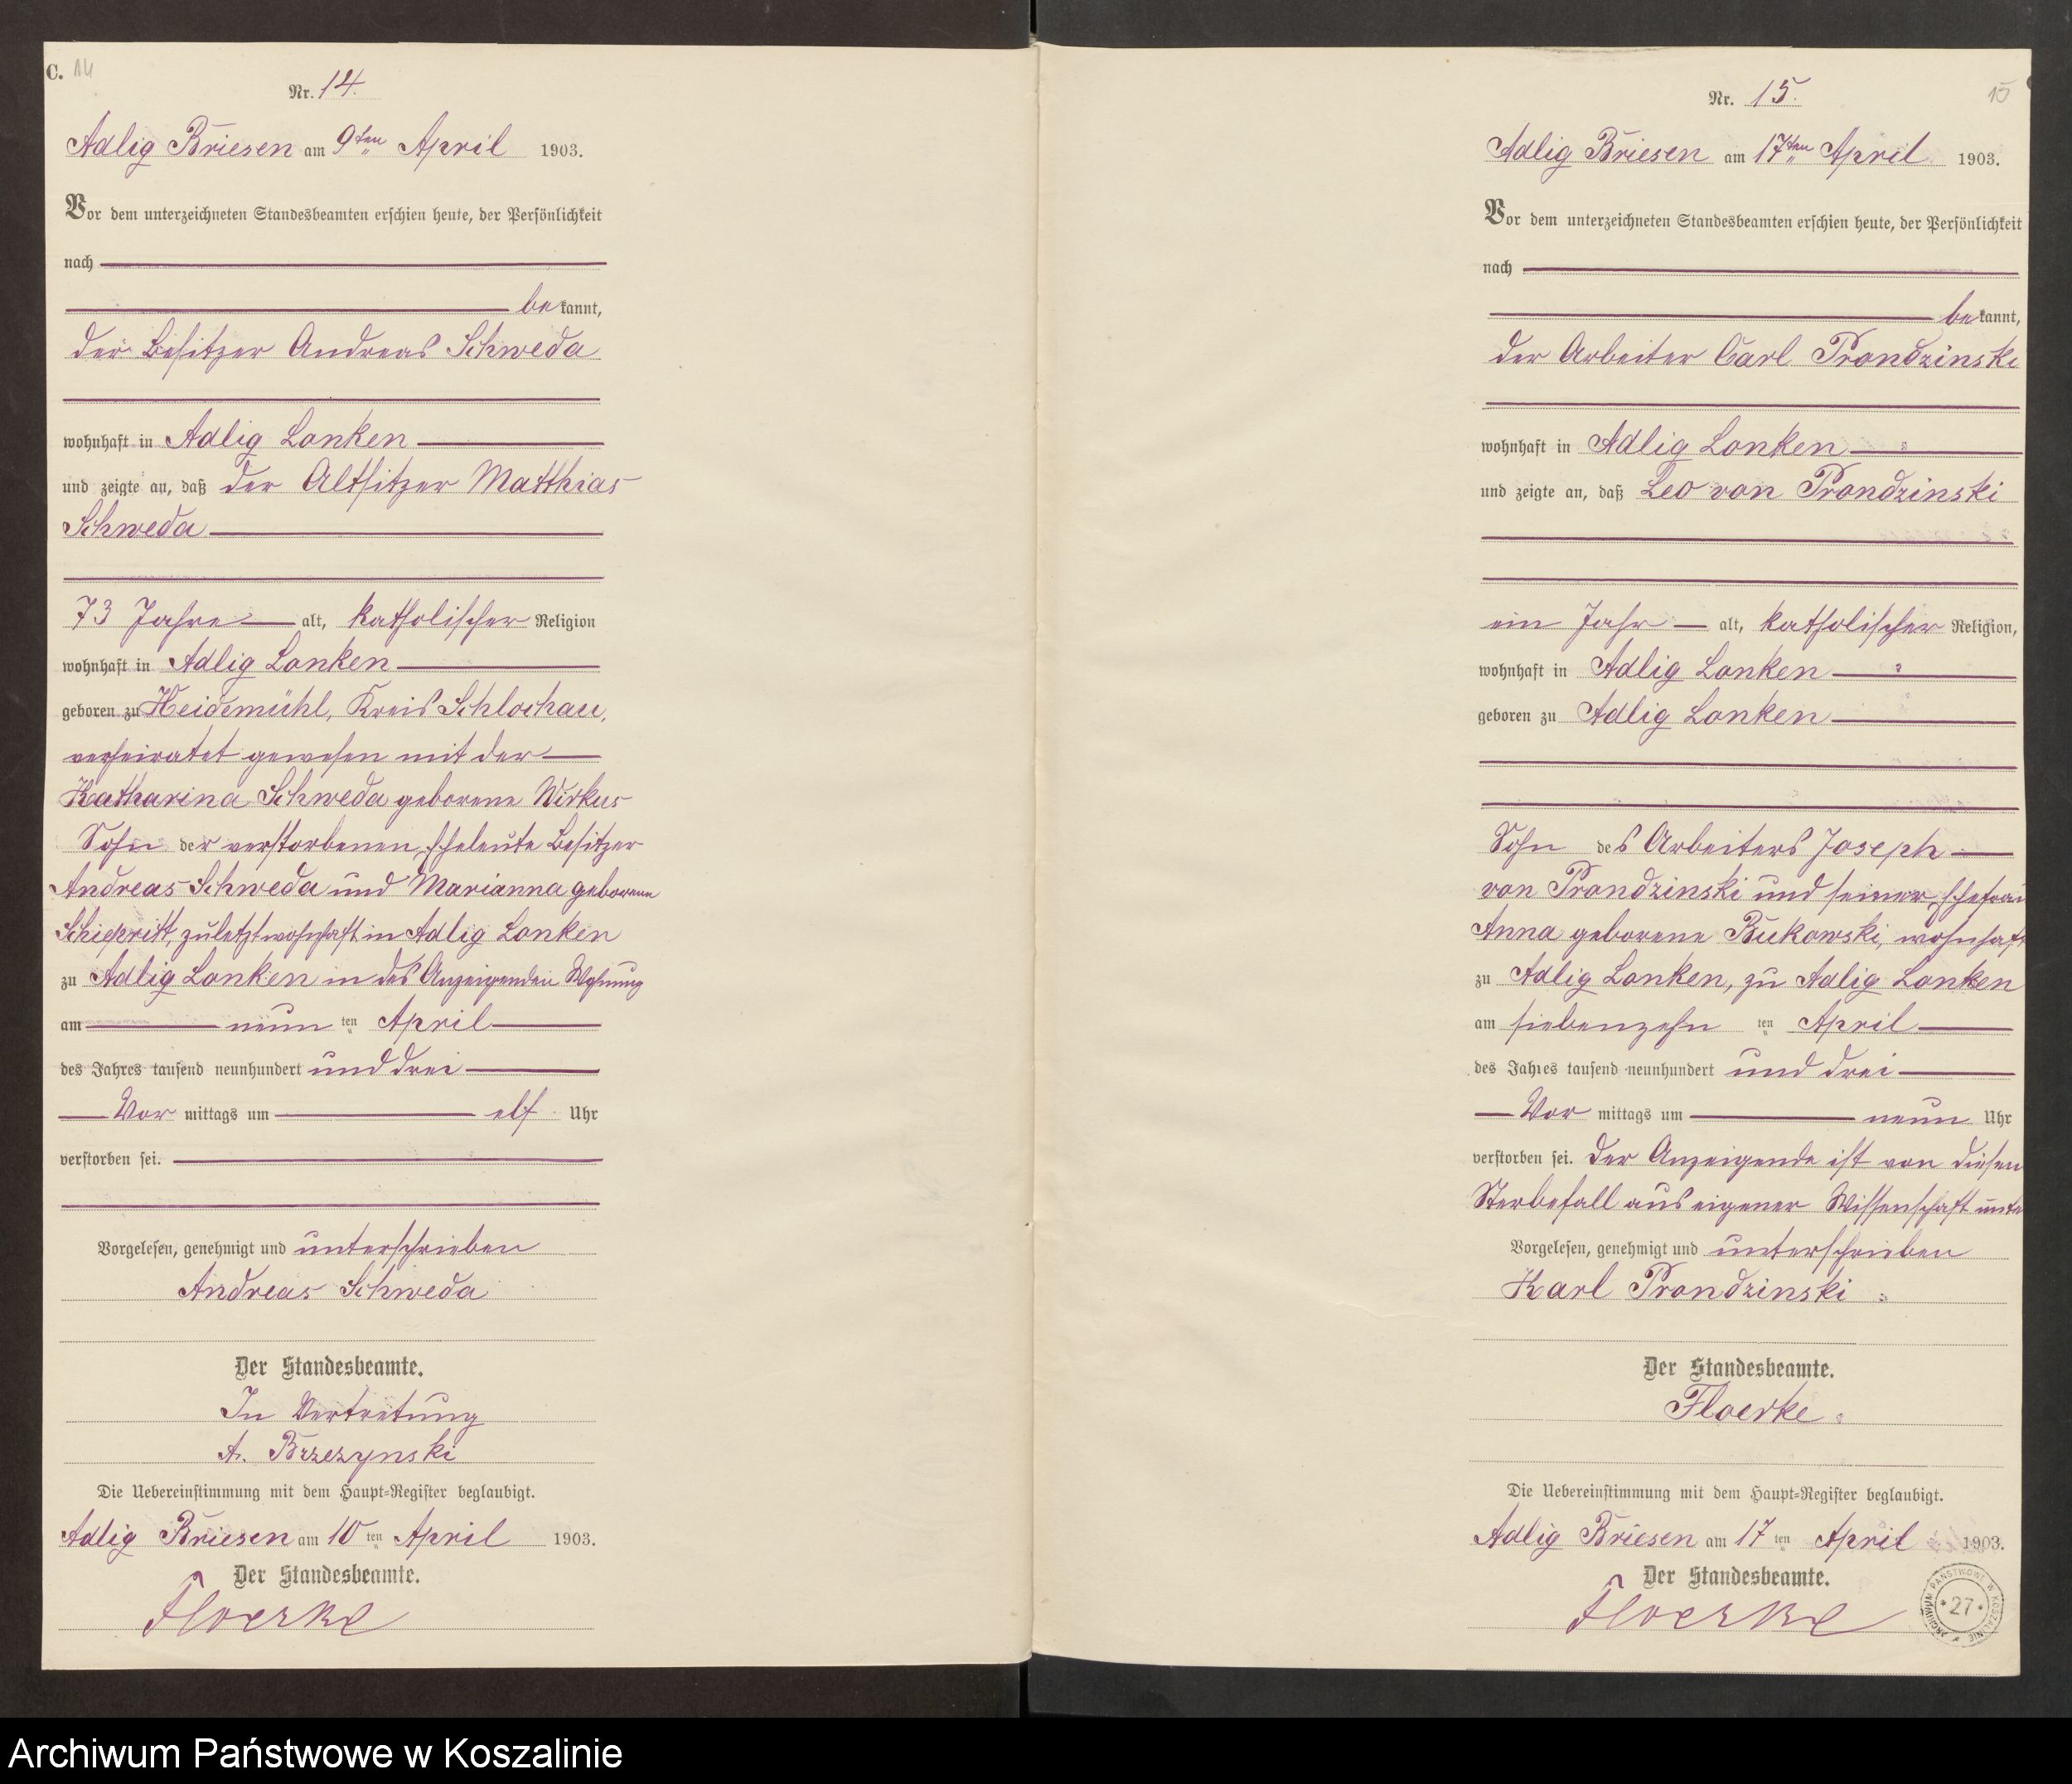 C. 14
Nr. 14.
Adlig Briesen am 9ten April 1903.
Vor dem unterzeichneten Standesbeamten erschien heute, der Persönlichkeit
nach
bekannt,
der Besitzer Andreas Schweda
wohnhaft in Adlig Lonken
und zeigte an, daß der Altsitzer Matthias
Schweda
73 Jahre alt, katholischer Religion
wohnhaft in Adlig Lonken
geboren zu Heidemühl, Kreis Schlochau,
verheiratet gewesen mit der
Katharina Schweda geborene Wirkus
Sohn der verstorbenen Eheleute Besitzer
Andreas Schweda und Marianna geborene
zuletzt wohnhaft in Adlig Lonken
zu Adlig Lonken in des Anzeigenden Wohnung
am neun ten April
des Jahres tausend neunhundert und drei
Vor mittags um elf Uhr
verstorben sei.
Vorgelesen, genehmigt und unterschrieben
Andreas Schweda
Der Standesbeamte.
In Vertretung
A. Brzezynski
Die Uebereinstimmung mit dem Haupt-Register beglaubigt.
Adlig Briesen am 10 ten April 1903.
Der Standesbeamte.
Floerke
15
Nr. 15.
Adlig Briesen am 17ten April 1903.
Vor dem unterzeichneten Standesbeamten erschien heute, der Persönlichkeit
nach
bekannt,
der Arbeiter Carl Prondzinski
wohnhaft in Adlig Lonken
und zeigte an, daß Leo von Prondzinski
ein Jahr alt, katholischer Religion,
wohnhaft in Adlig Lonken
geboren zu Adlig Lonken
Sohn des Arbeiters Joseph
von Prondzinski und seiner Ehefrau
Anna geborene Bukowski, wohnhaft
zu Adlig Lonken, zu Adlig Lonken
am siebenzehn ten April
des Jahres tausend neunhundert und drei
Vor mittags um neun Uhr
verstorben sei. Der Anzeigende ist von diesen
Sterbefall aus eigener Wissenschaft
Vorgelesen, genehmigt und unterschrieben
Karl Prondzinski
Der Standesbeamte.
Floerke
Die Uebereinstimmung mit dem Haupt-Register beglaubigt.
Adlig Briesen am 17 ten April 1903.
Der Standesbeamte.
Floerke
ARCHIWUM PAŃSTWOWE W KOSZALINIE
* 27 *
Archiwum Państwowe w Koszalinie